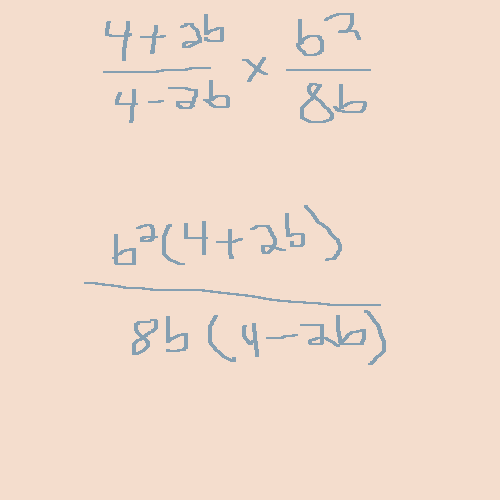 4+2b/4-2b × b²/8b
b²(4+2b)/8b(4-2b)